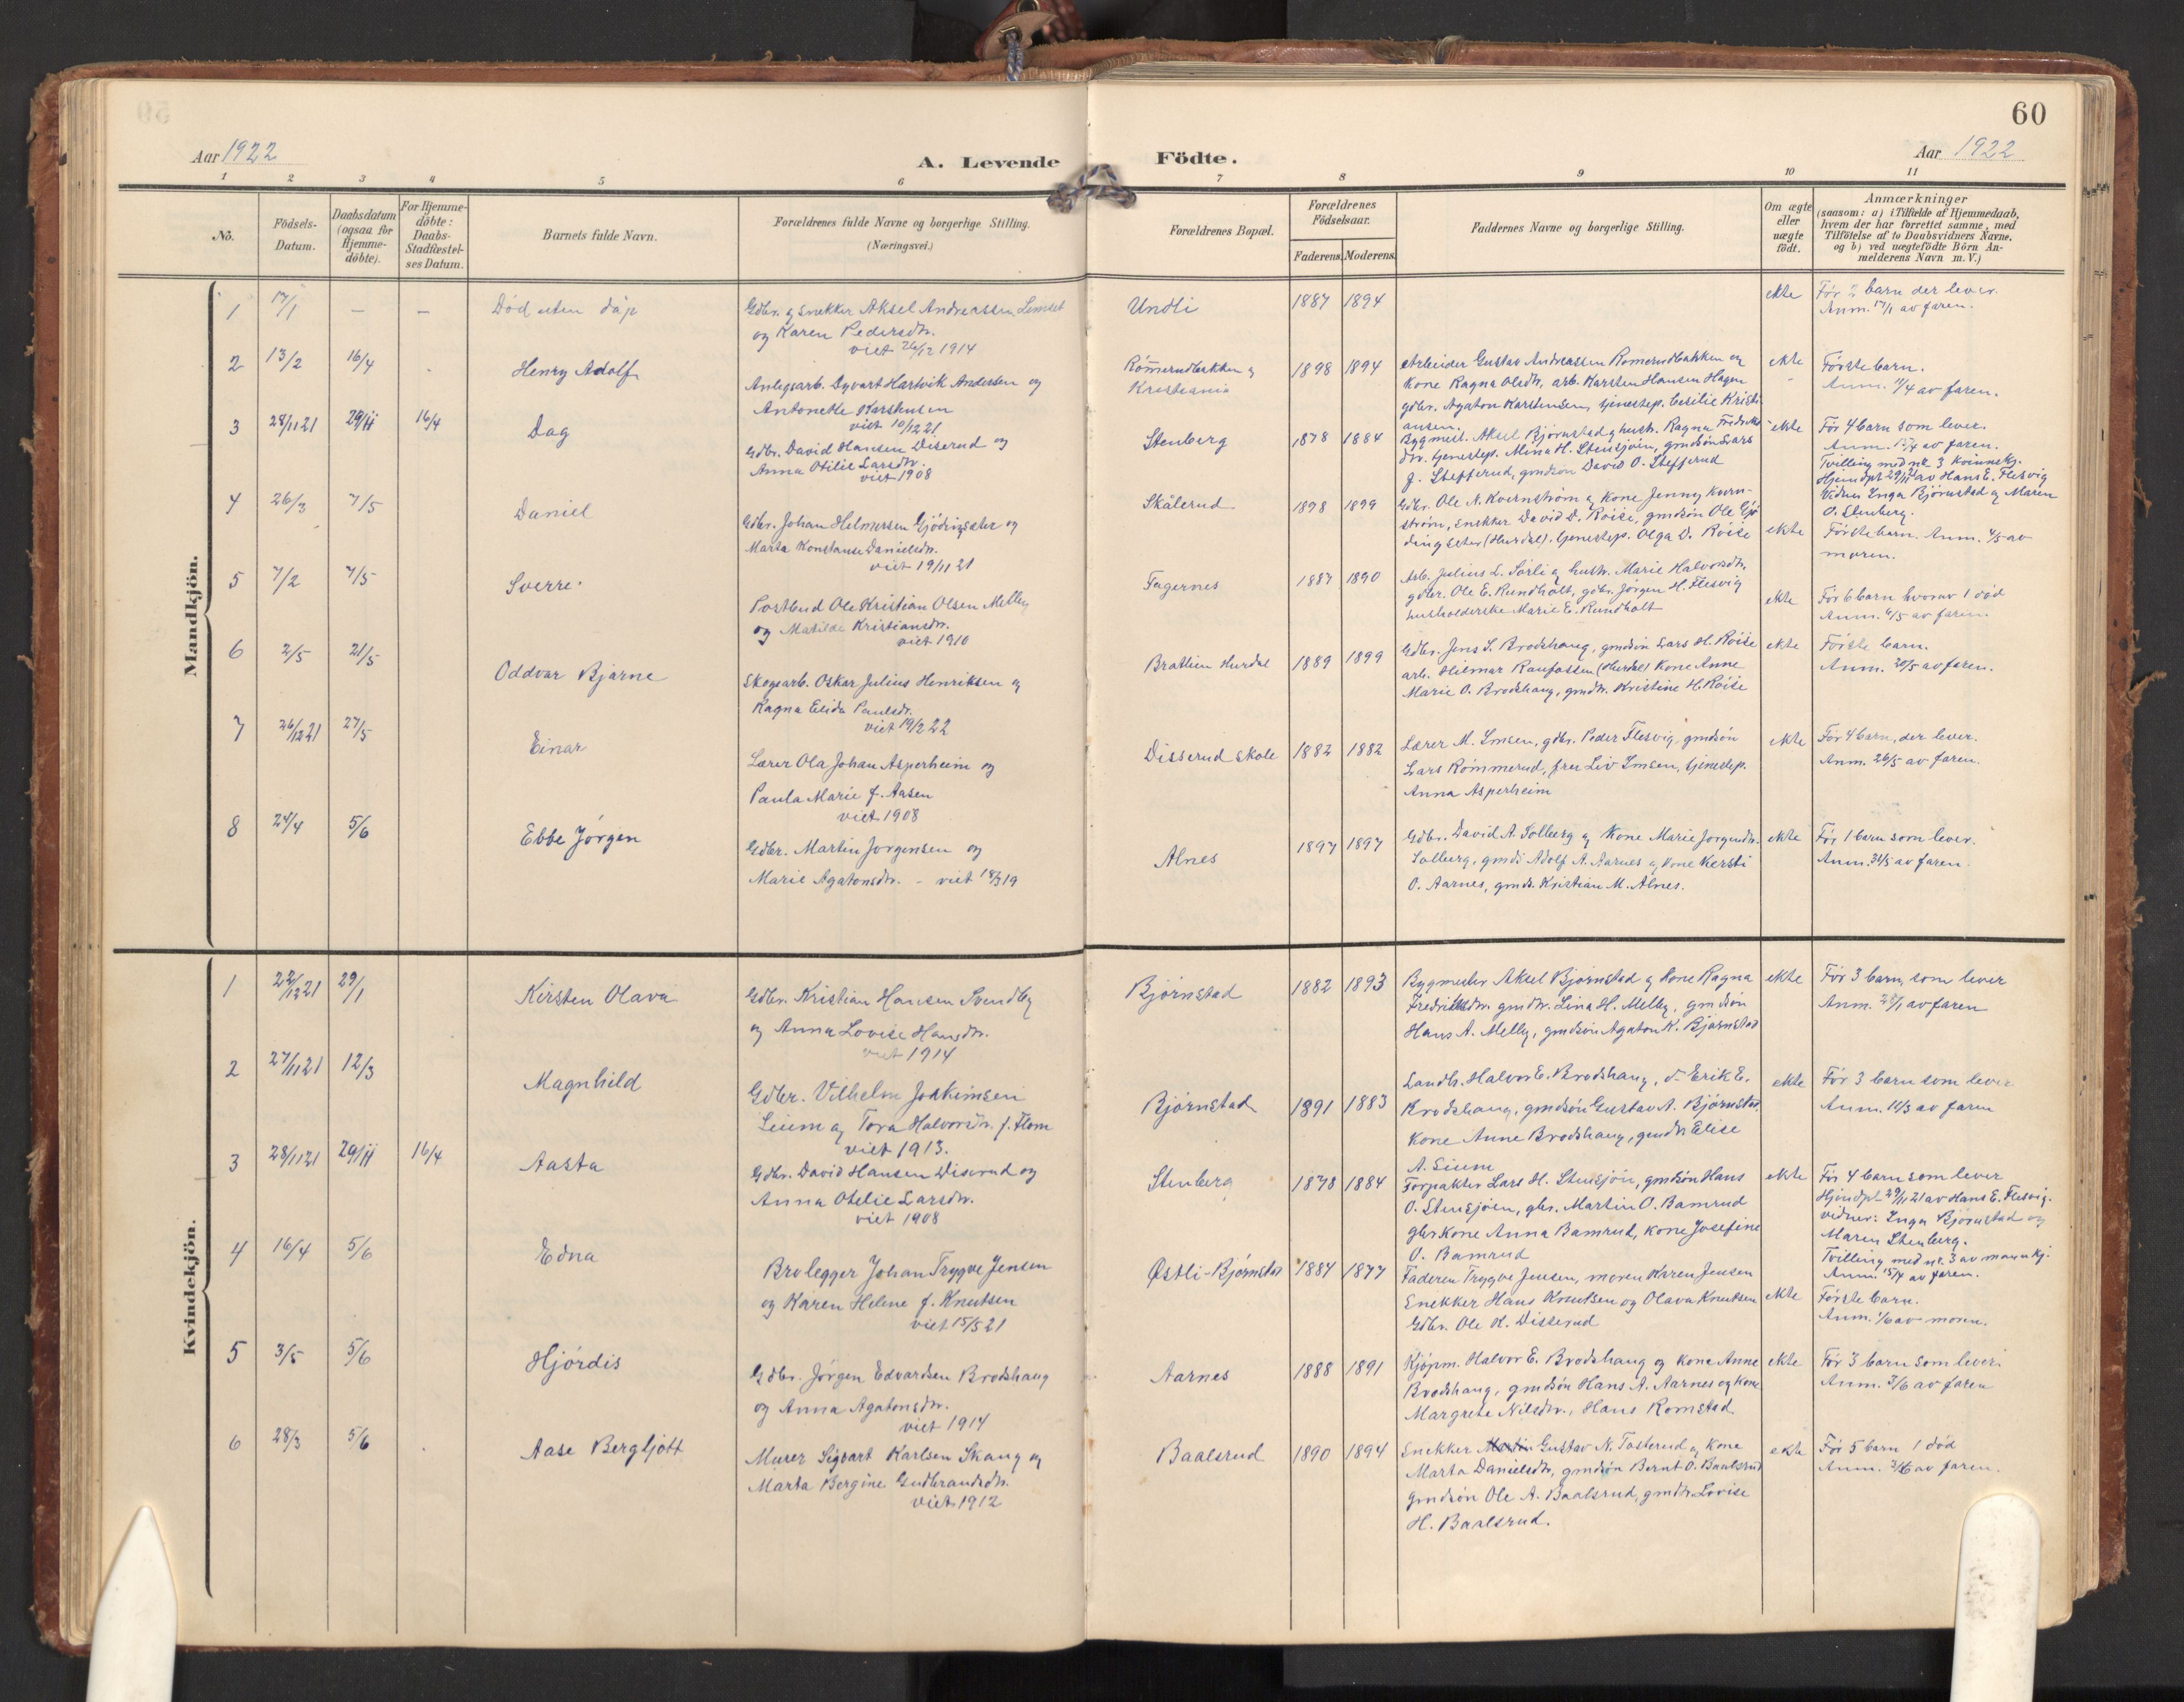 60
Aar 1922
A. Levende
Födte.
Aar 1922
1 2 3 4 5 6 7 8 9 10 11
No.
Födsels-
Datum.
Daabsdatum
(ogsaa for
Hjemme-
döbte).
For Hjemme-
döbte:
Daabs-
Stadfæstel-
ses Datum.
Barnets fulde Navn.
Forældrenes fulde Navne og borgerlige Stilling.
(Næringsvei.)
Forældrenes Bopæl.
Forældrenes
Födselsaar.
Faderens. Moderens.
Faddernes Navne og borgerlige Stilling.
Om ægte
eller
uægte
födt.
Anmærkninger
(saasom: a) i Tilfælde af Hjemmedaab,
hvem der har forrettet samme, med
Tilföielse af to Daabsvidners Navne,
og b) ved uægtefödte Börn An-
melderens Navn m. V.)
Mandkjön.
1 17/1 — — Död uten dåp
Gdbr. og snekker Aksel Andreassen Limset
og Karen Pedersdtr.
viet 26/12 1914
Undli 1887 1894 ekte
För 2 barn der lever.
Anm. 17/1 av faren.
2 13/2 16/4 Henry Adolf
Anlegsarb. Syvert Hartvik Andersen og
Antonette Karstensen
viet 10/12 21
Römerudbakken og
Kristiania
1898 1894
Arbeider Gustav Andreassen Romerudbakken og
Kone Ragna Olsdtr, arb. Karsten Hansen Hagen
gdbr. Agaton Karstensen, tjenestep. Cesilie Kristi-
ansen.
ekte
Förste barn.
Anm. 11/4 av faren.
3 28/11 21 29/11 16/4 Dag
Gdbr. David Hansen Diserud og
Anna Otilie Larsdtr.
viet 1908
Stenberg 1878 1884
Bygmest. Aksel Björnstad og hustr. Ragna Fredriks-
dtr. tjenestep. Mina H. Stensjöen, gmdsön Lars
J. Stefferud, gmdsön David O. Stefferud
ekte
För 4 barn som lever.
Anm. 15/4 av faren.
Tvilling med nr 3 kvinnekj.
Hjemdpt 29/11 av Hans E. Flesvig
Vidner Inga Björnstad og Maren
O. Stenberg.
4 26/3 7/5 Daniel
Gdbr. Johan Helmersen Gjödingseter og
Marta Konstanse Danielsdtr.
viet 19/11 21
Skålerud 1898 1899
Gdbr. Ole N. Kvernström og Kone Jenny Kvern-
ström, snekker David D. Röise, gmdsön Ole Gjö-
dingseter (Hurdal). tjenestep. Olga D. Röise
ekte
Förste barn. Anm. 4/5 av
moren.
5 7/2 7/5 Sverre
Postbud Ole Kristian Olsen Melby
og Matilde Kristiansdtr.
viet 1910
Fagernes 1887 1890
Arb. Julius L. Sorli og hustr. Marie Halvorsdtr,
gdbr. Ole E. Rundholt, gdbr. Jörgen H. Flesvig
husholderske Marie E. Rundholt
ekte
För 6 barn hvorav 1 död
Anm. 6/5 av faren.
6 2/5 21/5 Oddvar Bjarne
Skogsarb. Oskar Julius Henriksen og
Ragna Elida Paulsdr.
viet 19/2 22
Bratlien Hurdal 1889 1899
Gdbr. Jens L. Brodshaug, gmdsön Lars H. Röise
arb. Hilemar Raufossen (Hurdal) Kone Anne
Marie O. Brodshaug, gmdtr. Kristine H. Röise
ekte
Förste barn.
Anm. 20/5 av faren.
7 26/12 21 27/5 Einar
Lærer Ola Johan Asperheim og
Paula Marie f. Aasen
viet 1908
Disserud skole 1882 1882
Lærer M. Imsen, gdbr. Peder Flesvig, gmdsön
Lars Römmerud, fru Liv Imsen, tjenestep.
Anna Asperheim
ekte
För 4 barn, der lever.
Anm. 26/5 av faren.
8 24/4 5/6 Ebbe Jörgen
Gdbr. Martin Jorgensen og
Marie Agatonsdtr. - viet 18/3 19
Alnes 1897 1897
Gdbr. David A. Solberg og Kone Marie Jorgendtr.
Solberg, gmds Adolf A. Aarnes og Kone Kersti
O. Aarnes, gmds. Kristian M. Alnes.
ekte
För 1 barn som lever.
Anm. 31/5 av faren.
Kvindekjön.
1 22/12 21 29/1 Kirsten Olava
Gdbr. Kristian Hansen Svendby
og Anna Lovise Hansdtr.
viet 1914
Björnstad 1882 1893
Bygmester Aksel Björnstad og Kone Ragna
Fredriksdtr. gmdtr. Lina H. Melby, gmdsön
Hans A. Melby, gmdsön Agaton K. Björnstad
ekte
För 3 barn, som lever
Anm. 28/1 av faren
2 27/11 21 12/3 Magnhild
Gdbr. Vilhelm Joakimsen
Seium og Tora Halvorsdtr. f. Flom
viet 1913.
Björnstad 1891 1883
Landh. Halvor E. Brodshaug, d. Erik E.
Brodshaug, gmdsön Gustav A. Björnstad,
Kone Anne Brodshaug, gmdtr Elise
A. Sium
ekte
För 3 barn som lever
Anm. 11/3 av faren
3 28/11 21 29/11 16/4 Aasta
Gdbr. David Hansen Diserud og
Anna Otelie Larsdtr.
viet 1908
Stenberg 1878 1884
Forpakter Lars H. Stensjöen, gmdsön Hans
O. Stensjöen, gbr. Martin O. Bamrud
gbr Kone Anna Bamrud, kone Josefine
O. Bamrud
ekte
För 4 barn som lever
Hjemdpt 29/11 21 av Hans E. Flesvig.
vidner: Inga Björnstad og
Maren Stenberg.
Tvilling med nr. 3 av mannkj.
Anm. 15/4 av faren.
4 16/4 5/6 Edna
Brolegger Johan Trygve Jensen
og Karen Helene f. Knutsen
viet 15/5 21
Østli-Björnstad 1884 1877
Faderen Trygve Jensen, moren Karen Jensen
Snekker Hans Knutsen og Olava Knutsen
Gdbr. Ole K. Disserud
ekte
Förste barn.
Anm. 1/6 av moren.
5 3/5 5/6 Hjördis
Gdbr. Jörgen Edvardsen Brodshaug
og Anna Agatonsdtr.
viet 1914
Aarnes 1888 1891
Kjöpm. Halvor E. Brodshaug og kone Anne
Brodshaug, gmdsön Hans A. Aarnes og Kone
Margrete Nilsdtr., Hans Romstad
ekte
För 3 barn som lever.
Anm. 3/6 av faren
6 28/3 5/6 Aase Bergljott
Murer Sigvart Karlsen Skaug og
Marta Bergine Gudbrandsdtr.
viet 1912
Baalsrud 1890 1894
Snekker Martin Gustav N. Tosterud og Kone
Marta Danielsdtr, gmdsön Bernt O. Baalsrud
gmdsön Ole A. Baalsrud, gmdtr Lovise
H. Baalsrud.
ekte
För 5 barn 1 död
Anm. 3/6 av faren.